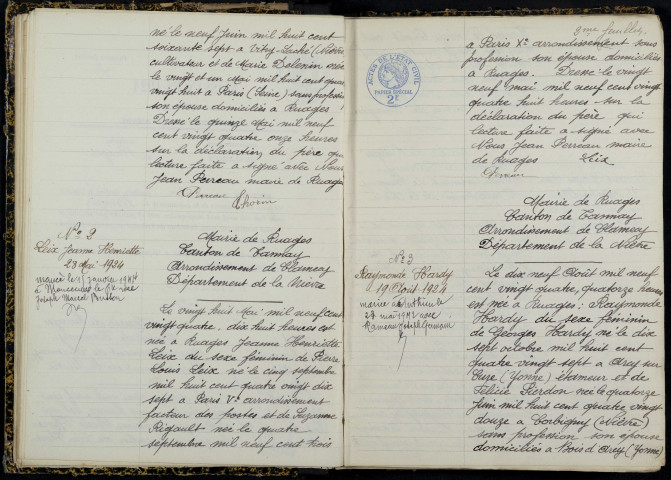 né le neuf Juin mil huit cent
soixante sept à Vitry-Laché (Nièvre
cultivateur et de Marie Delenin née
le vingt et un Mai mil huit cent quatre
vingt huit à Paris (Seine) sans profession
son épouse domiciliés à Ruages
Dressé le quinze Mai mil neuf
cent vingt quatre onze heures
sur la déclaration du père qui
lecture faite a signé avec Nous
Jean Perreau maire de Ruages
Perreau
N° 2
Leix Jeanne Henriette
23 Mai 1924
Joseph Marcel
Mairie de Ruages
Canton de Tannay
Arrondissement de Clamecy
Département de la Nièvre
Le vingt huit Mai mil neuf cent
vingt quatre, dix huit heures est
née à Ruages Jeanne Henriette
Leix du sexe féminin de Pierre
Louis Leix né le cinq septembre
mil huit cent quatre vingt dix
sept à Paris Ve arrondissement
facteur des postes et de Suzanne
Rigault née le quatre
septembre mil neuf cent trois
3me feuillet
à Paris Xe arrondissement sans
profession son épouse domiciliés
à Ruages. Dressé le vingt
neuf mai mil neuf cent vingt
quatre huit heures sur la
déclaration du père qui
lecture faite a signé avec
Nous Jean Perreau maire
de Ruages Leix
Perreau
ACTES DE L'ÉTAT CIVIL
PAPIER SPÉCIAL
2F
N° 3
Raymonde Hardy
19 Août 1924
mariée à
28 mai 1942 avec
Germain
Mairie de Ruages
Canton de Tannay
Arrondissement de Clamecy
Département de la Nièvre
Le dix neuf Août mil neuf
cent vingt quatre, quatorze heures
est née à Ruages: Raymonde
Hardy du sexe féminin
de Georges Hardy né le dix
sept octobre mil huit cent
quatre vingt sept à Arcy sur
Cure (Yonne) étameur et de
Félicie Pierdon née le quatorze
Juin mil huit cent quatre vingt
douze à Corbigny (Nièvre)
sans profession son épouse
domiciliés à Bois d'Arcy (Yonne)